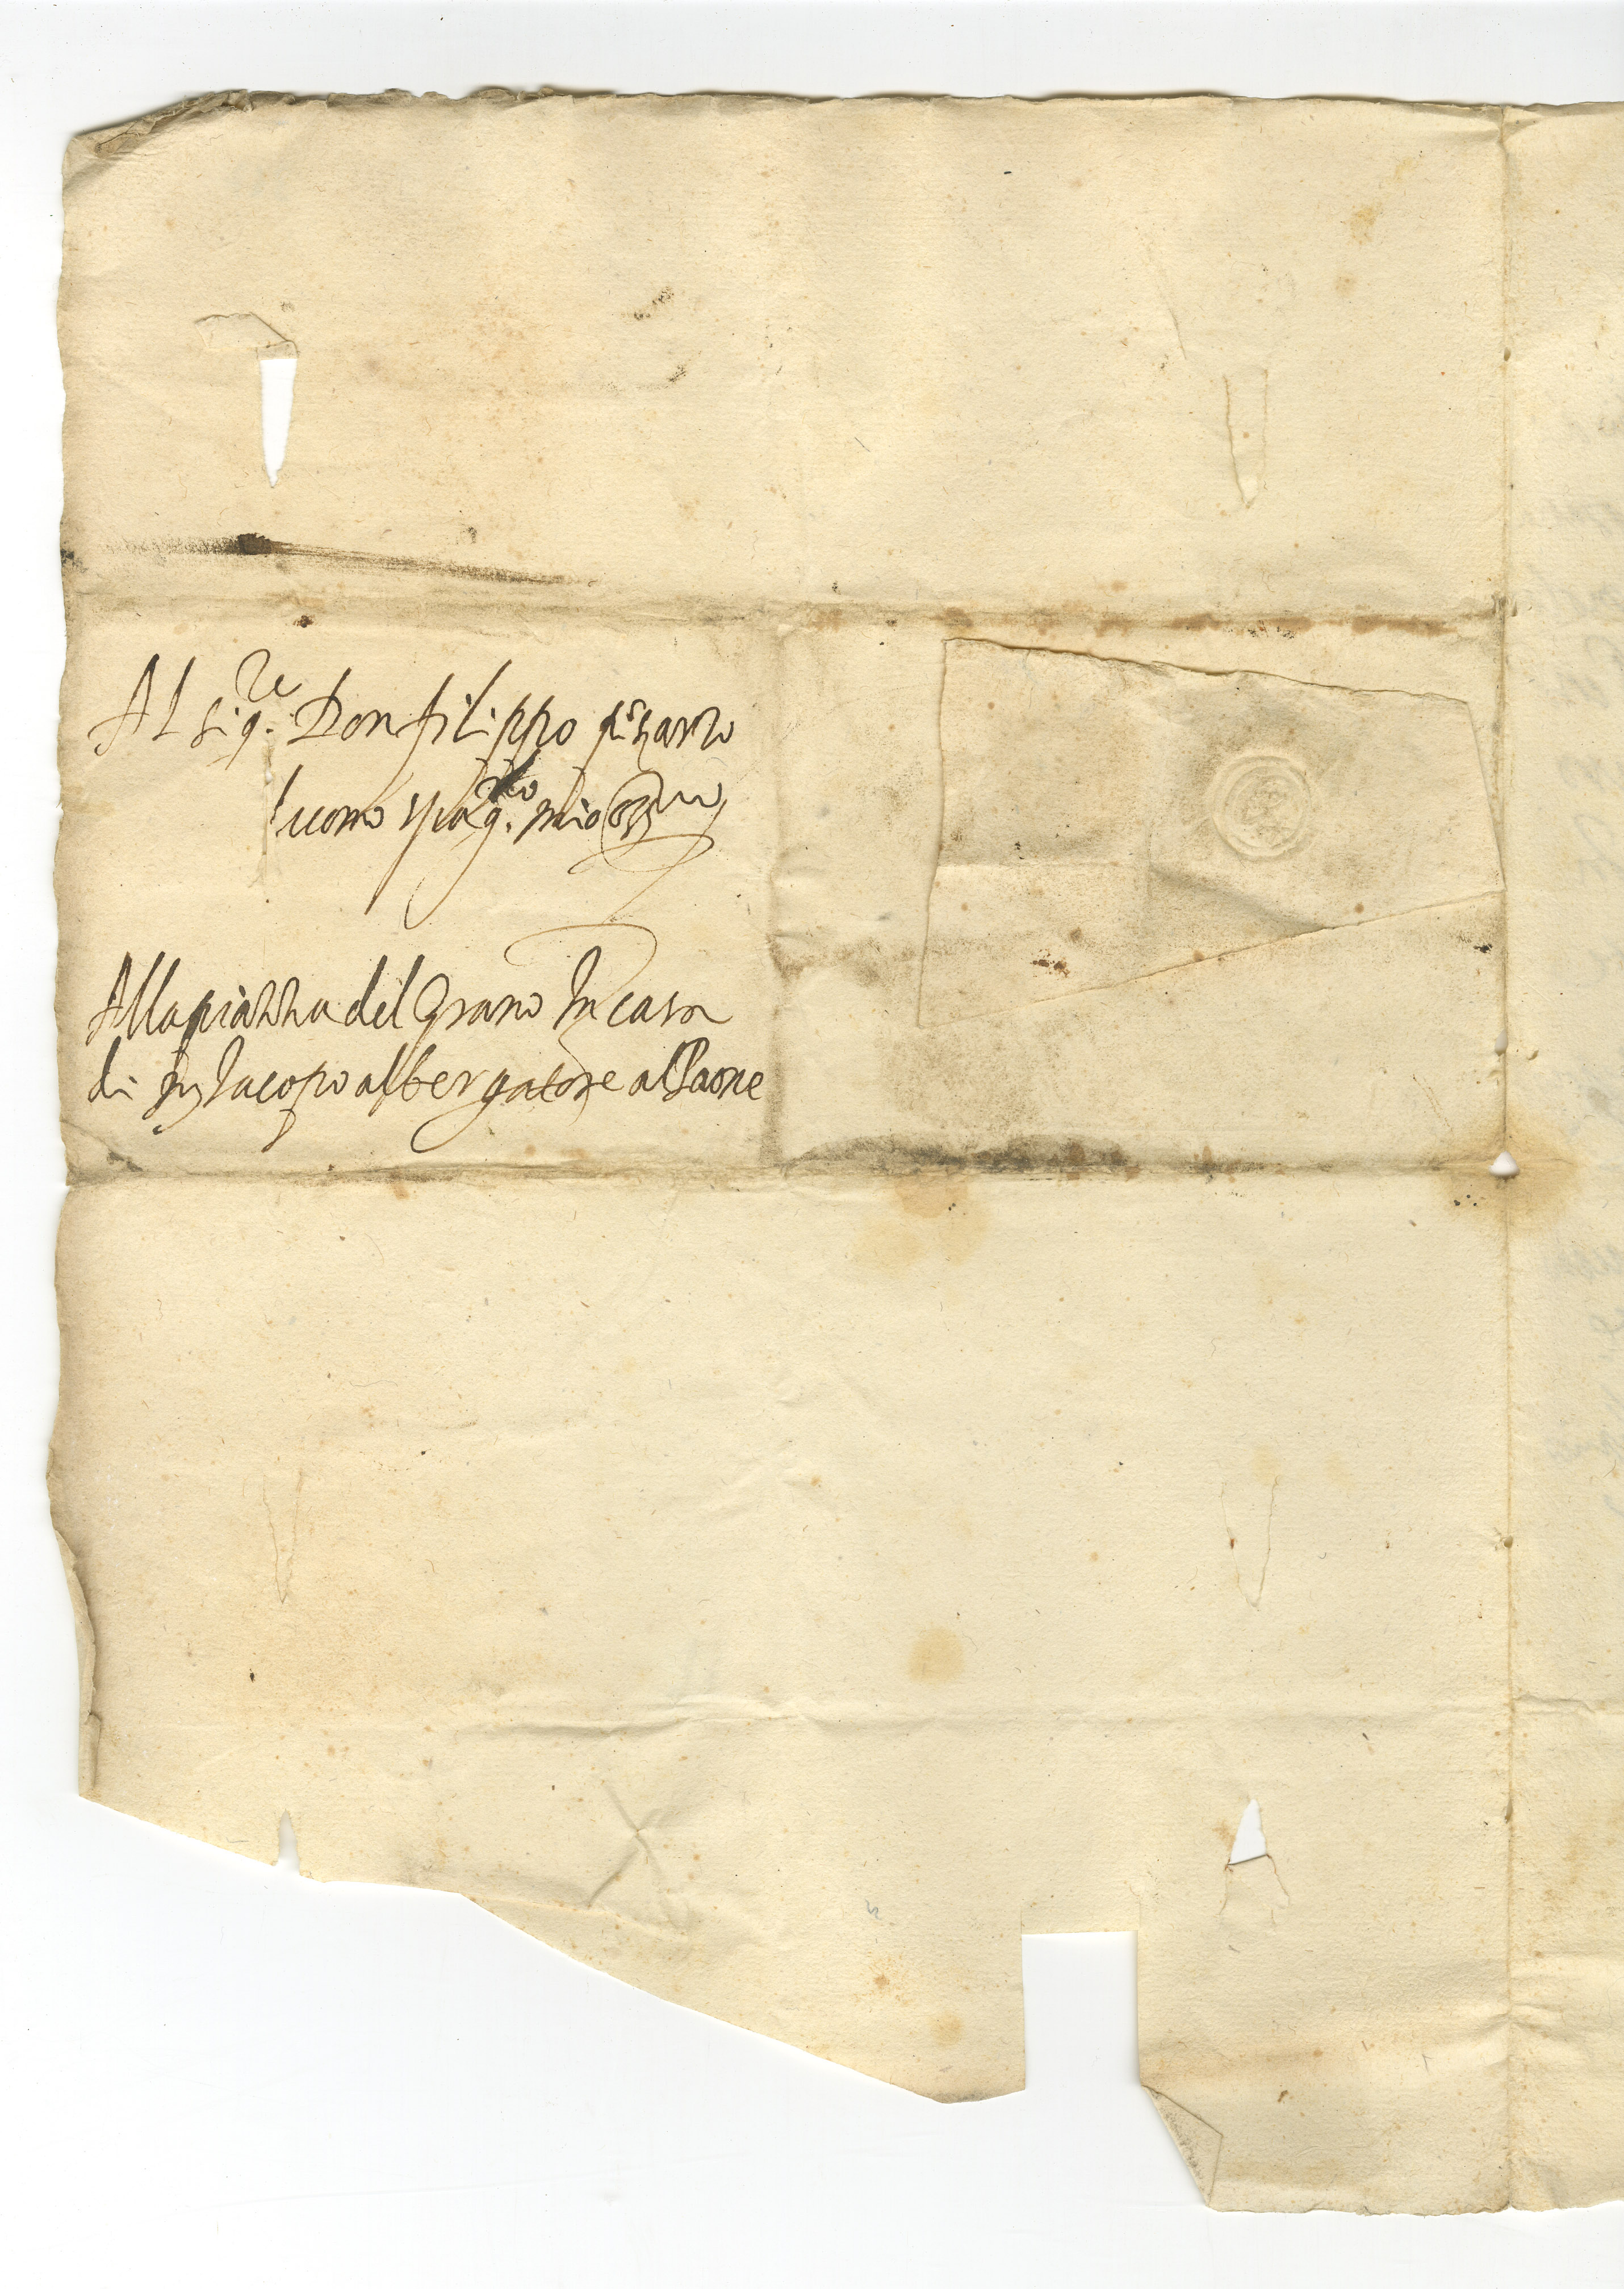 Al sig.re Don filippo pizarro
uomo spag.lo mio
Alla piazza del Grano In casa
di Iacopo albergatore al Paone